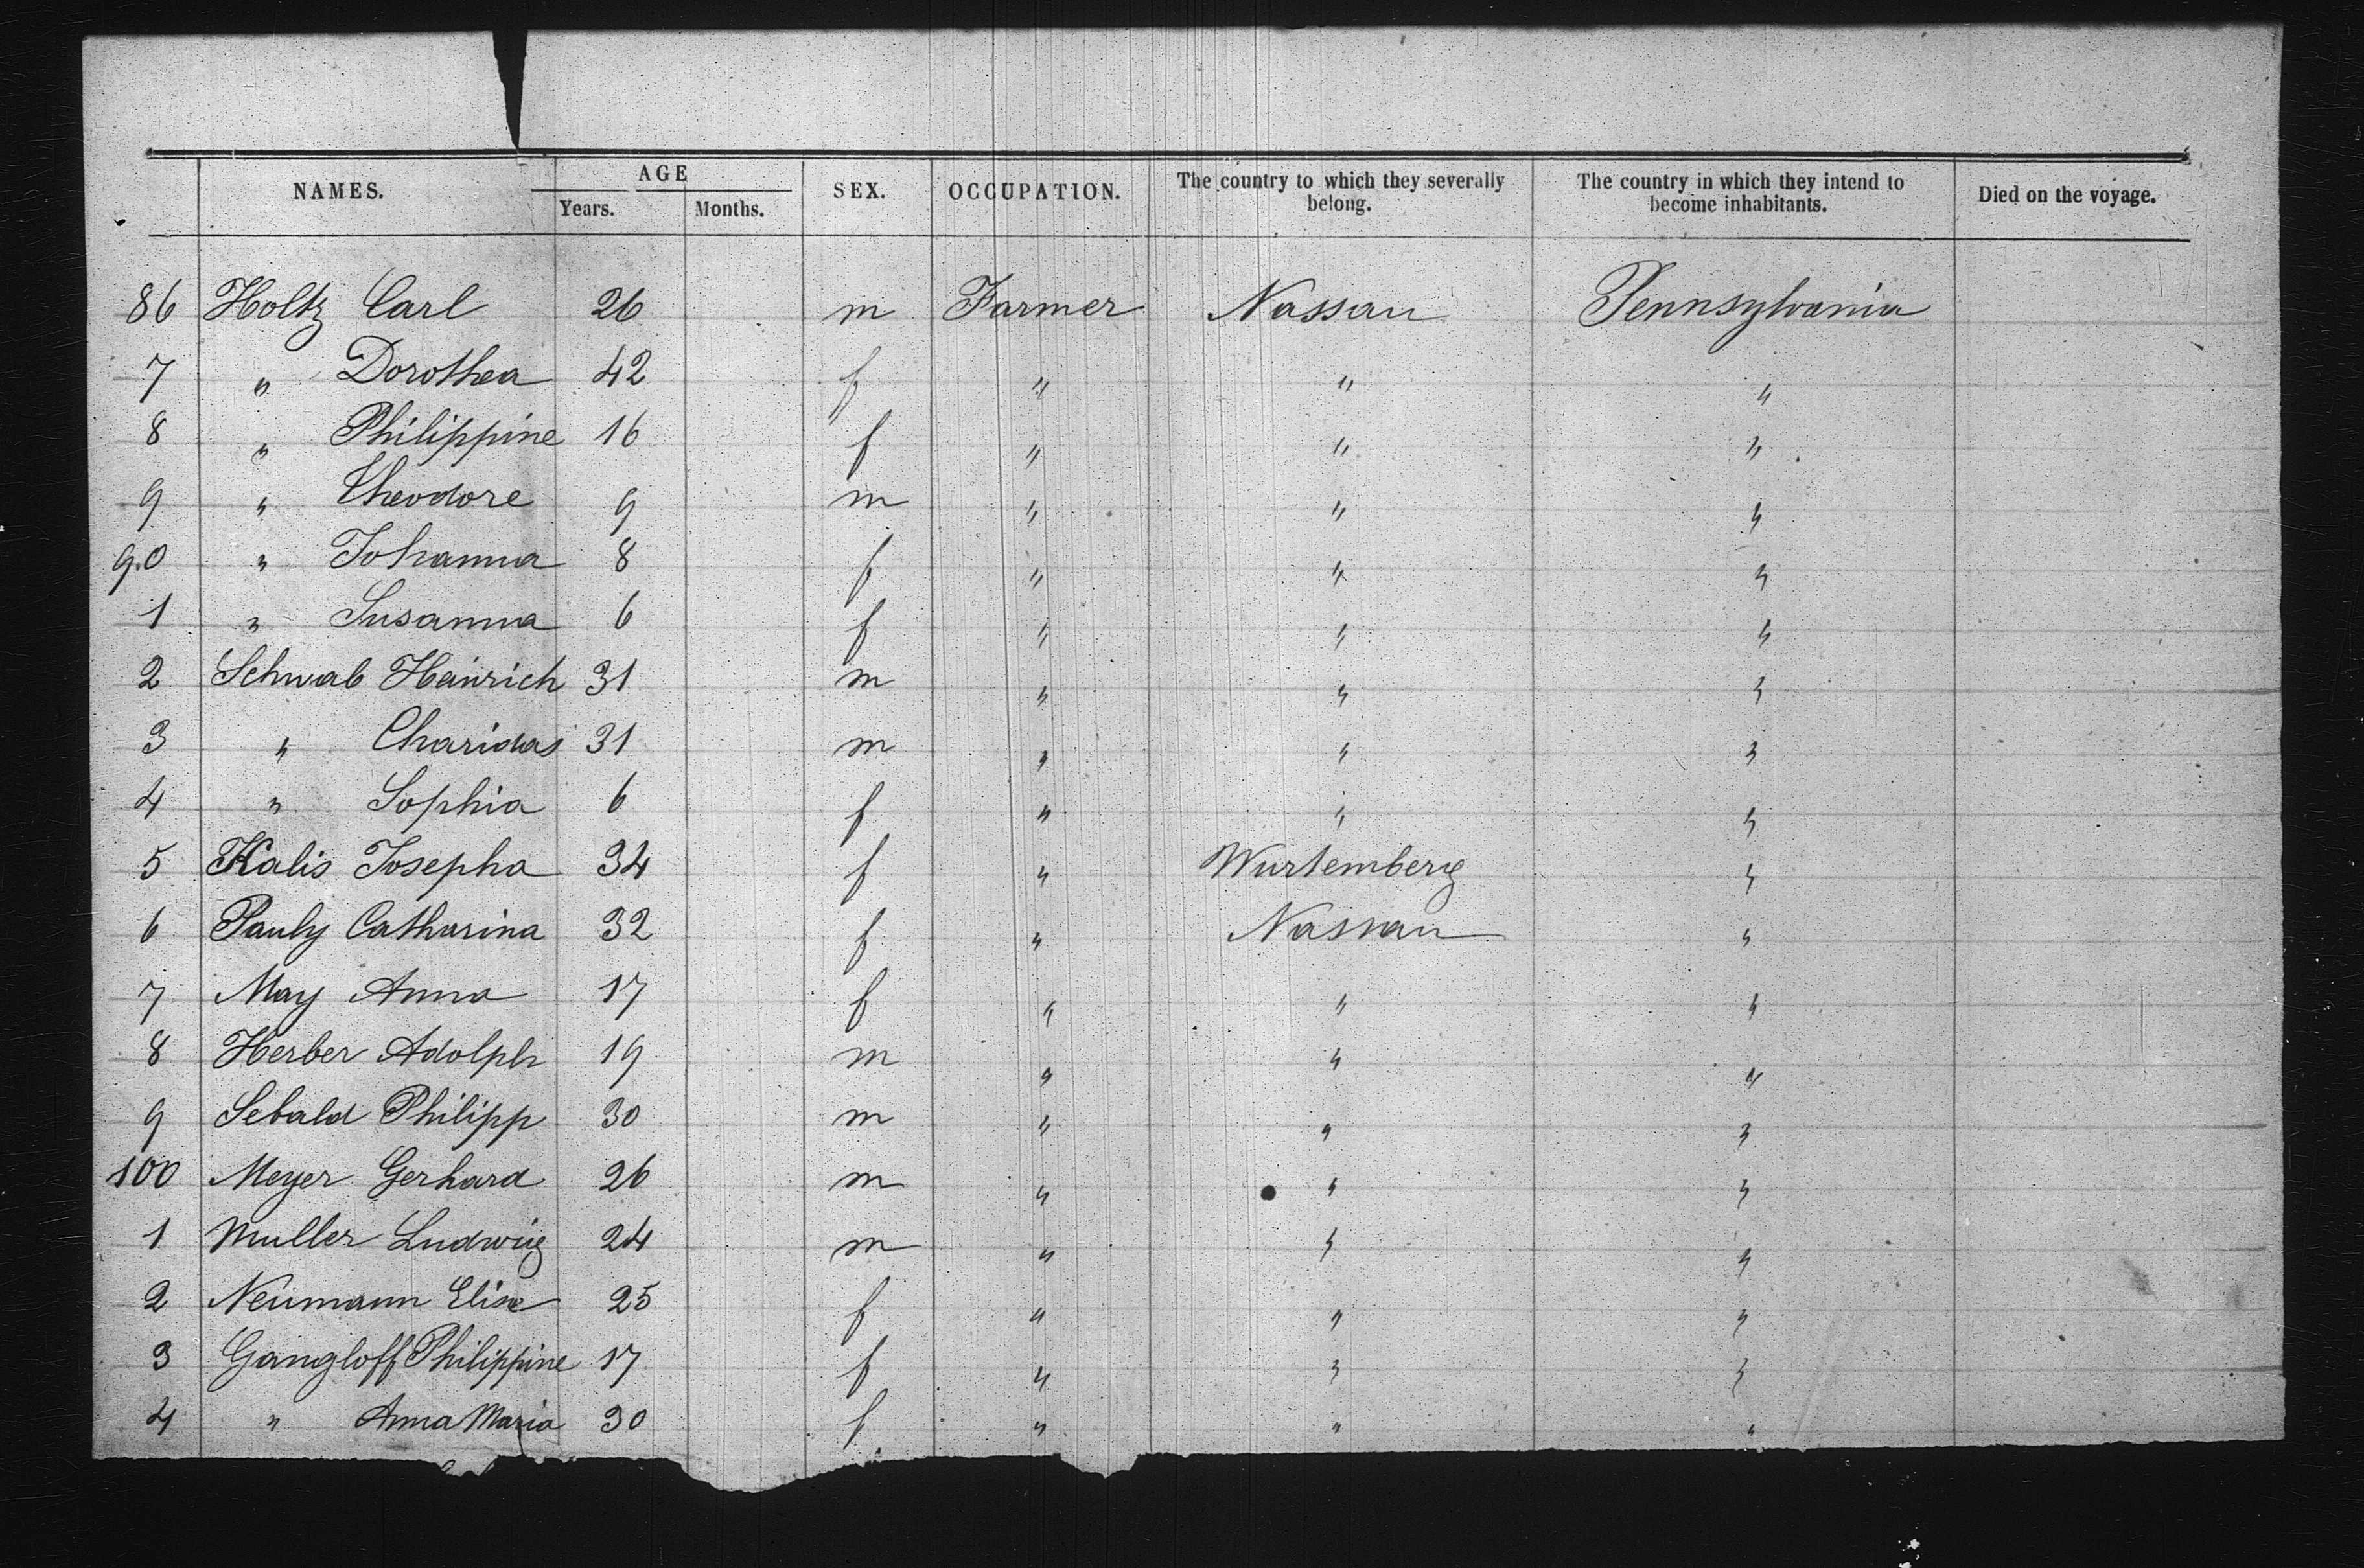 NAMES. AGE SEX. OCCUPATION. The country to which they severally belong. The country in which they intend to become inhabitants. Died on the voyage.
Years. Months.
86 Holtz Carl 26 m Farmer Nassau Pennsylvania
7 " Dorothea 42 f " " "
8 " Philippine 16 f " " "
9 " Theodore 9 m " " "
90 " Johanna 8 f " " "
1 " Susanna 6 f " " "
2 Schwab Heinrich 31 m " " "
3 " Charidas 31 m " " "
4 " Sophia 6 f " " "
5 Kalis Josepha 34 f " Wurtemberg "
6 Pauly Catharina 32 f " Nassau "
7 May Anna 17 f " " "
8 Herber Adolph 19 m " " "
9 Sebald Philipp 30 m " " "
100 Meyer Gerhard 26 m " " "
1 Muller Ludwig 24 m " " "
2 Neumann Elise 25 f " " "
3 Gangloff Philippine 17 f " " "
4 " Anna Maria 30 f " " "